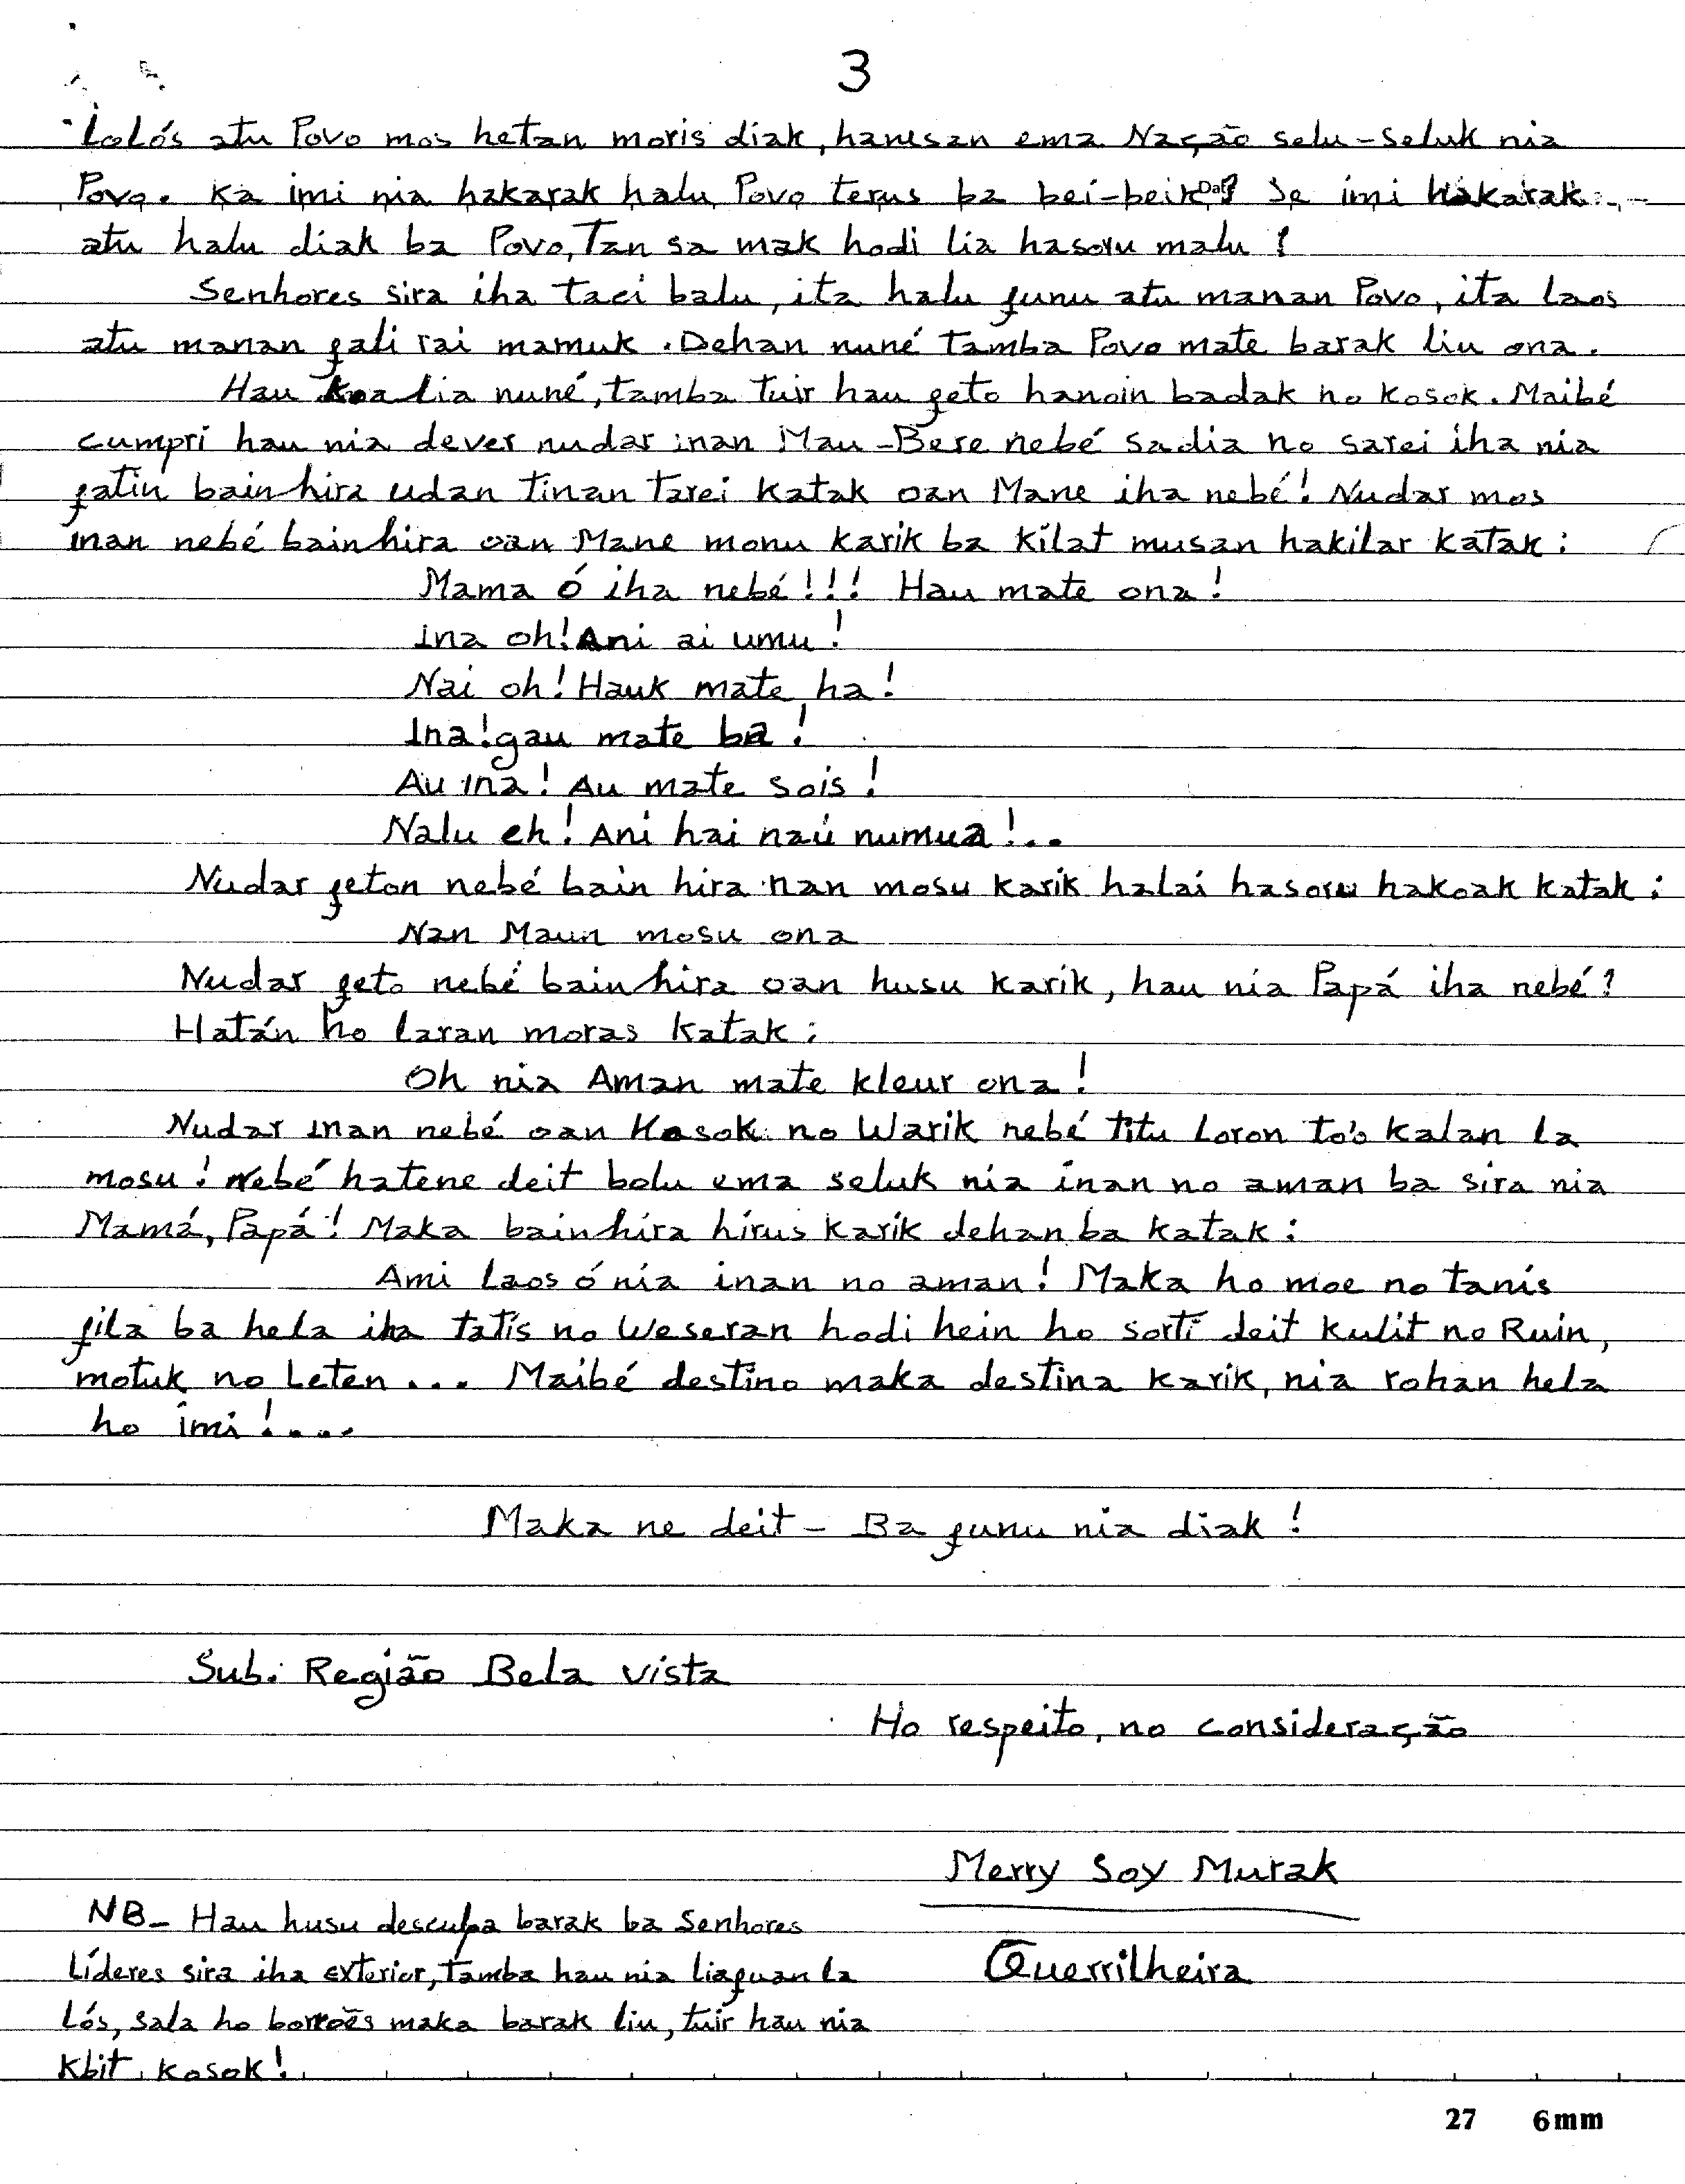 3
Lolós atu Povo mos hetan moris diak, hanesan ema Nação selu-seluk nia
Povo. Ka imi nia hakarak halu Povo terus ba bei-beik? Se imi hakarak
atu halu diak ba Povo, Tan sa mak hodi lia hasoru malu!
Senhores sira iha taci balu, ita halu funu atu manan Povo, ita laos
atu manan fali rai mamuk. Dehan nuné tamba Povo mate barak liu ona.
Hau koa lia nuné, tamba tuir hau feto hanoin badak no kosok. Maibé
cumpri hau nia dever nudar inan Mau-Bere nebé sadia no sarei iha nia
fatin bainhira udan tinan tarei katak oan Mane iha nebé! Nudar mos
inan nebé bainhira oan Mane monu karik ba kilat musan hakilar katak:
Mama ó iha nebé!!! Hau mate ona!
Ina oh! Ani ai umu!
Nai oh! Hauk mate ha!
Ina! gau mate ba!
Au ina! Au mate sois!
Nalu eh! Ani hai naú numua!..
Nudar feton nebé bain hira nan mosu karik halai hasoru hakoak katak:
Nan Maun mosu ona
Nudar feto nebé bainhira oan husu karik, hau nia Papá iha nebé?
Hatán ho laran moras katak:
Oh nia Aman mate kleur ona!
Nudar inan nebé oan Kosok no Warik nebé titu loron to'o kalan la
mosu! Nebé hatene deit bolu ema seluk nia inan no aman ba sira nia
Mamá, Papá! Maka bainhira hirus karik dehan ba katak:
Ami laos ó nia inan no aman! Maka ho moe no tanis
fila ba hela iha tatis no Weseran hodi hein ho sorti deit kulit no Ruin,
motuk no Leten... Maibé destino maka destina karik, nia rohan hela
ho imi!....
Maka ne deit - Ba funu nia diak!
Sub. Região Bela Vista
Ho respeito, no consideração
Merry Soy Murak
Guerrilheira
NB- Hau husu desculpa barak ba Senhores
Líderes sira iha exterior, tamba hau nia liafuan la
Lós, sala ho borrões maka barak liu, tuir hau nia
Kbit kosok!
27 6mm